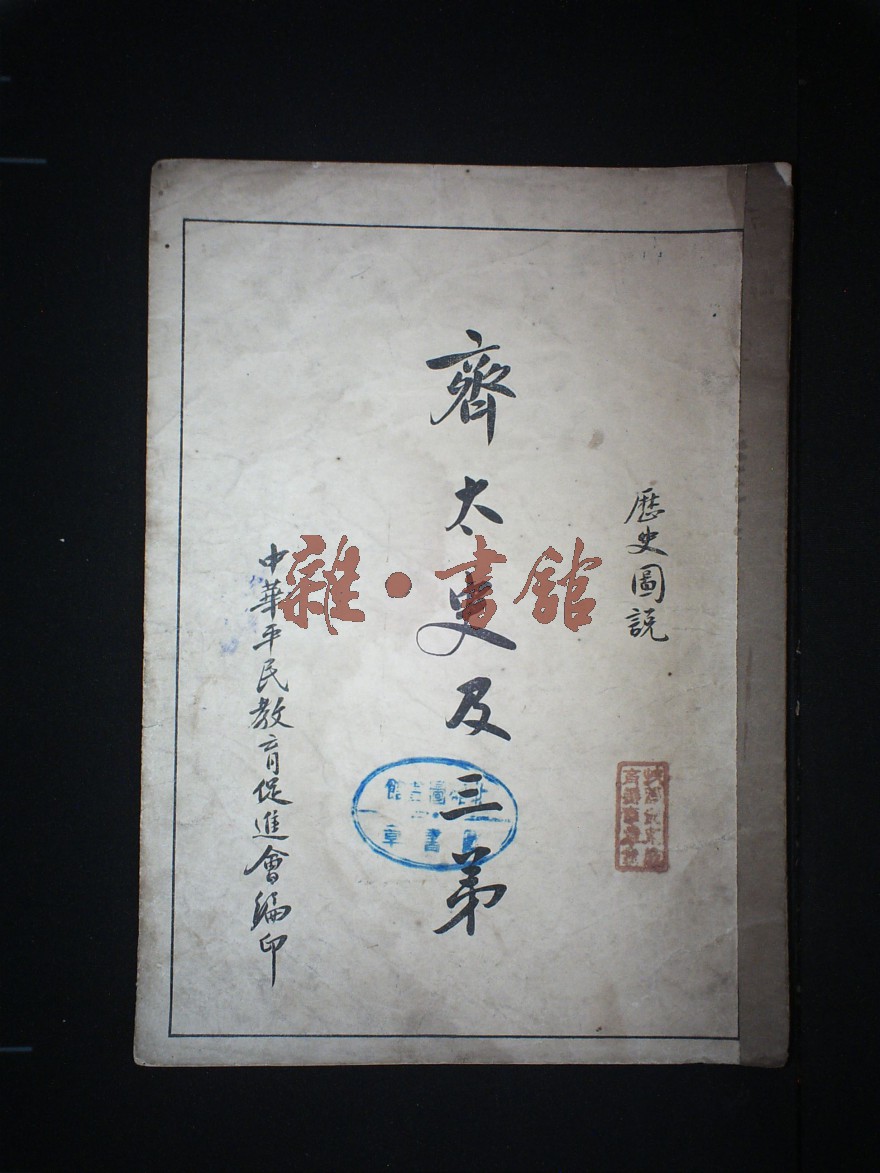 歷史圖説
齊太史及三弟
中華平民教育促進會編印
雜·書館